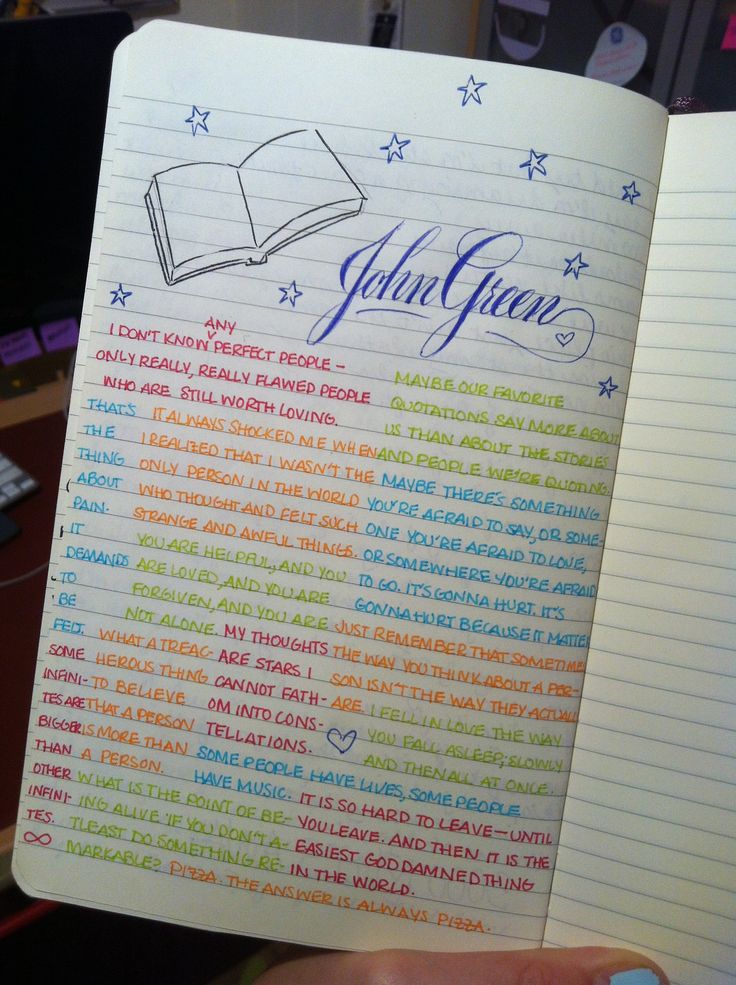 John Green
I DON'T KNOW ANY PERFECT PEOPLE –
ONLY REALLY, REALLY FLAWED PEOPLE
WHO ARE STILL WORTH LOVING.
MAYBE OUR FAVORITE
QUOTATIONS SAY MORE ABOUT
US THAN ABOUT THE STORIES
AND PEOPLE WE'RE QUOTING.
THAT'S
THE
THING
ABOUT
PAIN.
IT
DEMANDS
TO
BE
FELT.
IT ALWAYS SHOCKED ME, WHEN
I REALIZED THAT I WASN'T THE
ONLY PERSON IN THE WORLD
WHO THOUGHT AND FELT SUCH
STRANGE AND AWFUL THINGS.
MAYBE THERE'S SOMETHING
YOU'RE AFRAID TO SAY, OR SOME-
ONE YOU'RE AFRAID TO LOVE,
OR SOMEWHERE YOU'RE AFRAID
TO GO. IT'S GONNA HURT. IT'S
GONNA HURT BECAUSE IT MATTER
YOU ARE HELPFUL, AND YOU
ARE LOVED, AND YOU ARE
FORGIVEN, AND YOU ARE
NOT ALONE.
JUST REMEMBER THAT SOMETIME
THE WAY YOU THINK ABOUT A PER-
SON ISN'T THE WAY THEY ACTUALL
ARE.
SOME
INFINI-
TES ARE
BIGGER
THAN
OTHER
INFINI-
TES.
∞
WHAT A TREAC-
HEROUS THING
TO BELIEVE
THAT A PERSON
IS MORE THAN
A PERSON.
MY THOUGHTS
ARE STARS I
CANNOT FATH-
OM INTO CONS-
TELLATIONS.
I FELL IN LOVE THE WAY
YOU FALL ASLEEP; SLOWLY
AND THEN ALL AT ONCE.
SOME PEOPLE HAVE LIVES, SOME PEOPLE
HAVE MUSIC.
WHAT IS THE POINT OF BE-
ING ALIVE IF YOU DON'T A-
TLEAST DO SOMETHING RE-
MARKABLE?
IT IS SO HARD TO LEAVE — UNTIL
YOU LEAVE. AND THEN IT IS THE
EASIEST GODDAMNED THING
IN THE WORLD.
PIZZA. THE ANSWER IS ALWAYS PIZZA.